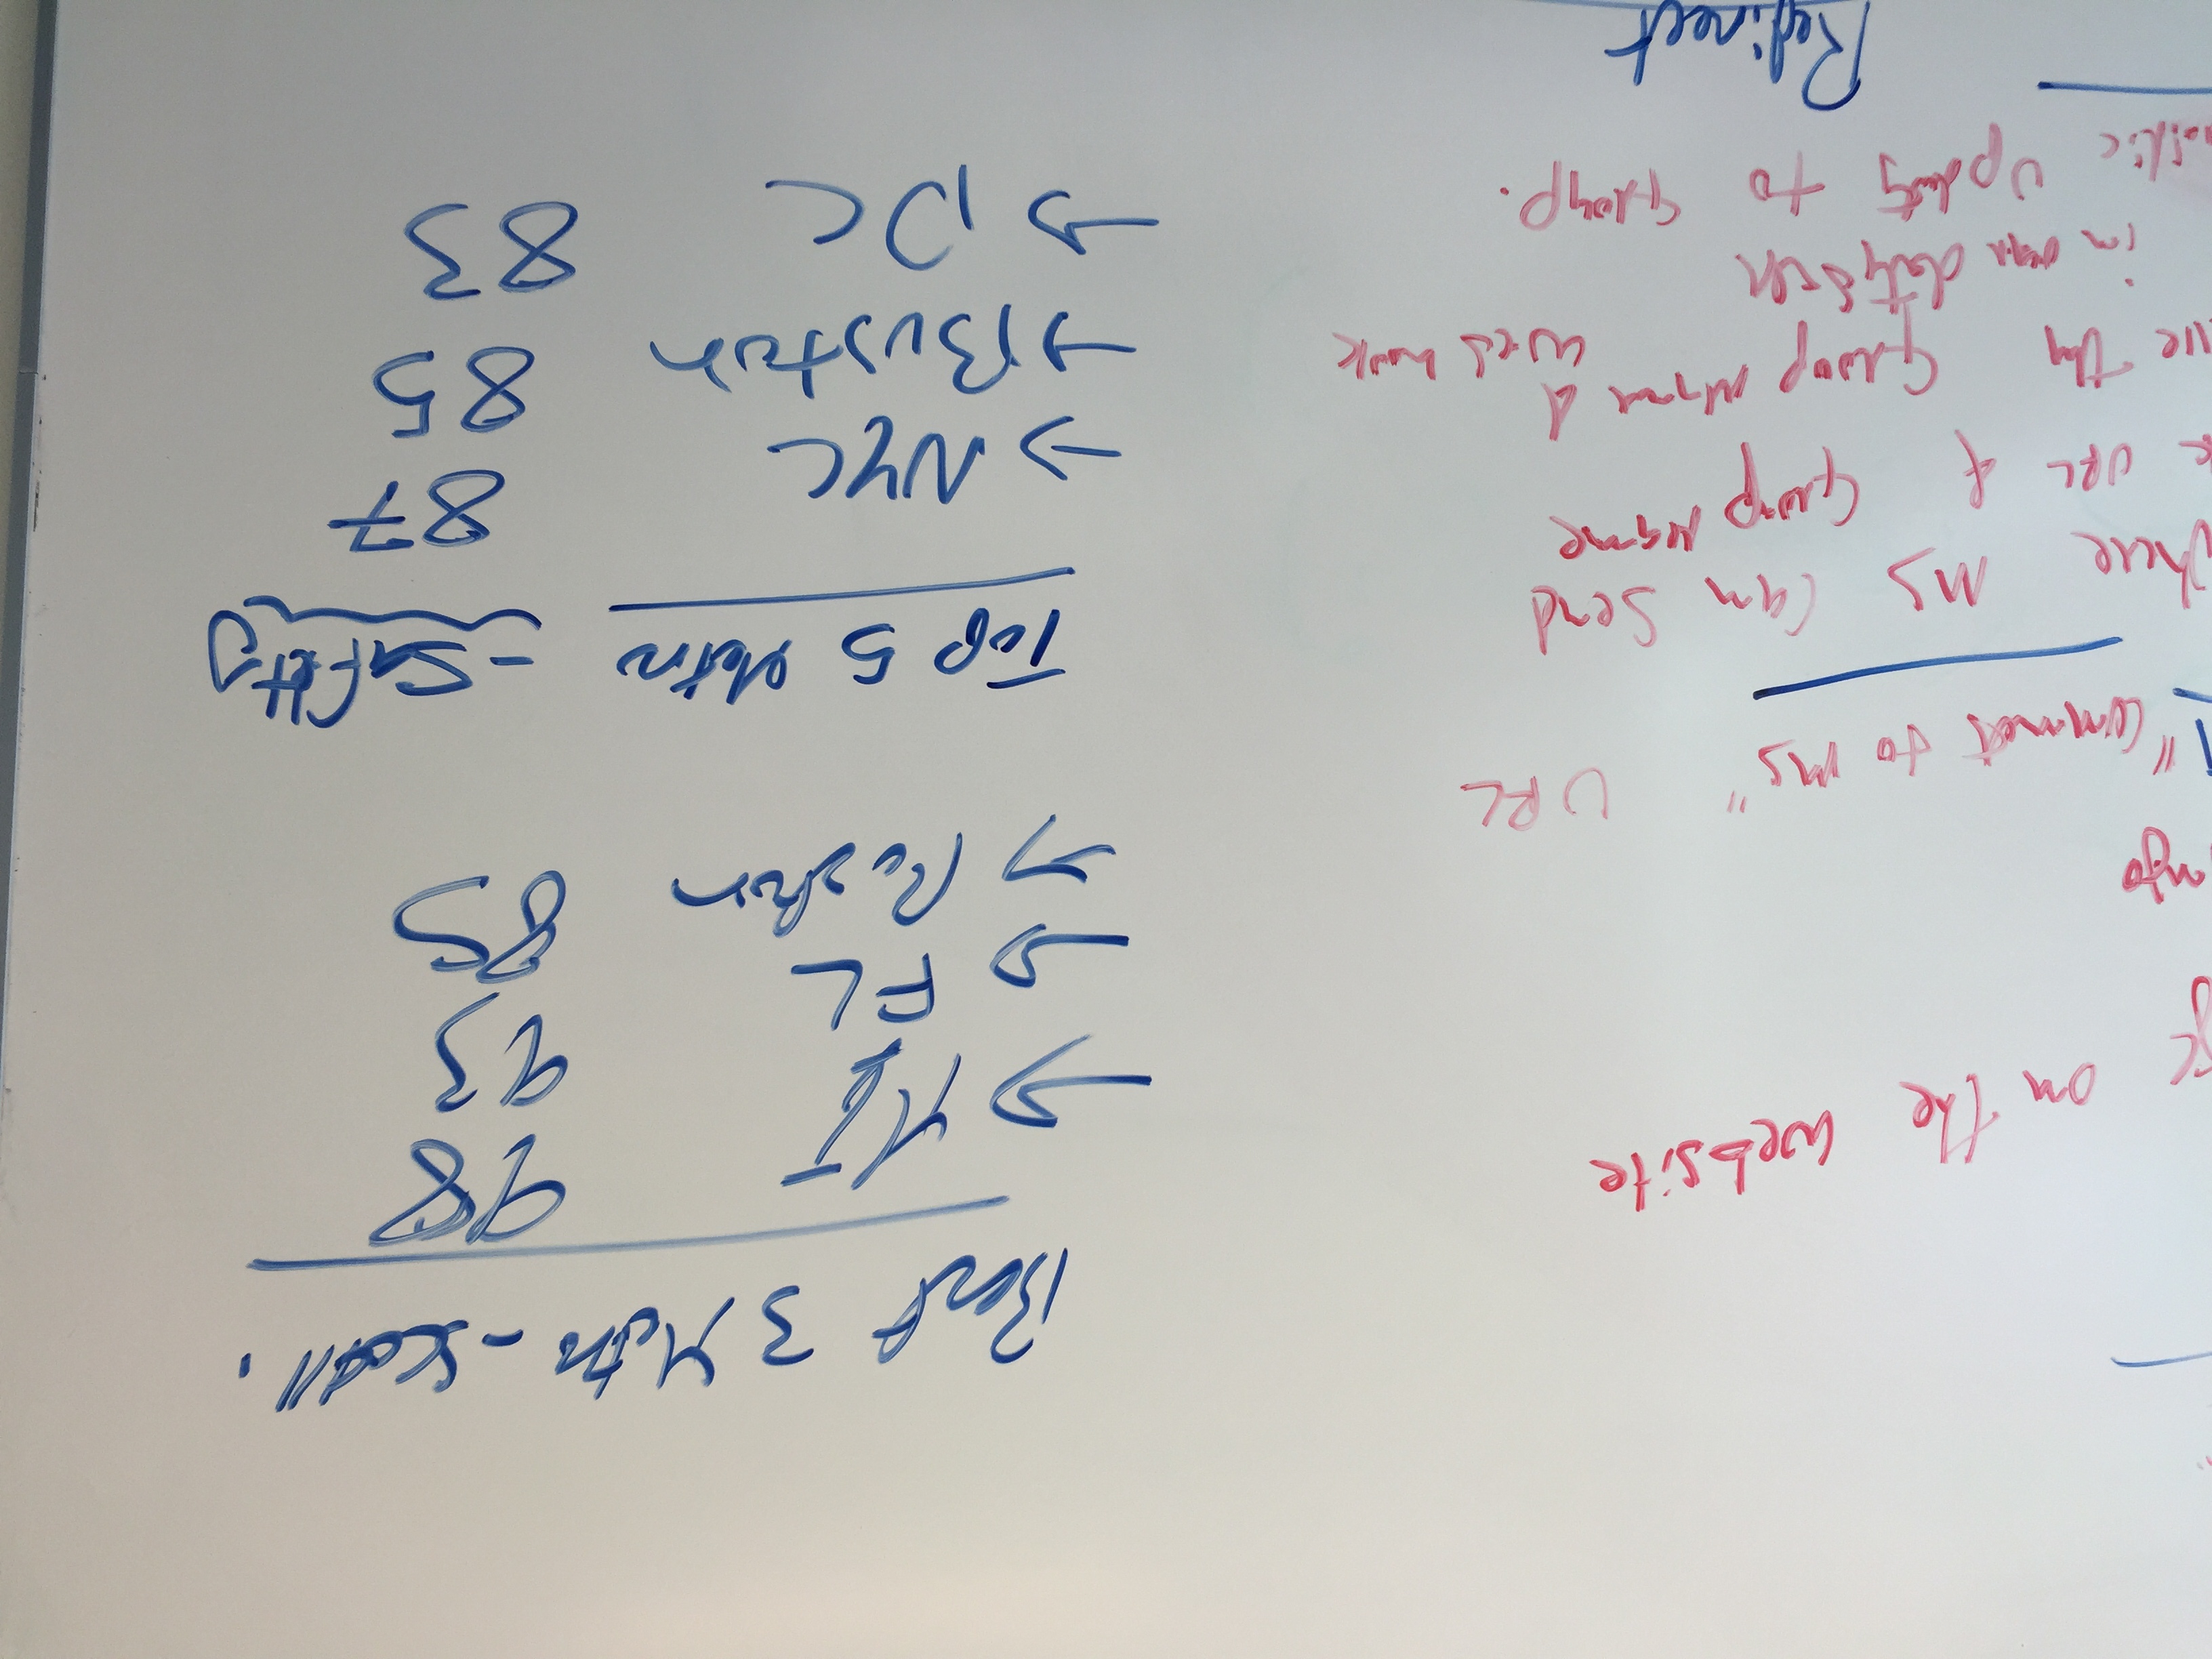 on the website
"Connect to MS" URL
where MS can send
URL & Group Name
the Group Name &
Web hook
in our database
update to group.
Redirect
Best 3 Metro -
98
→ MI 93
→ FL 85
→ Boston
Top 5 Metro - Safety
→ NYC 87
→ Boston 85
→ DC 83